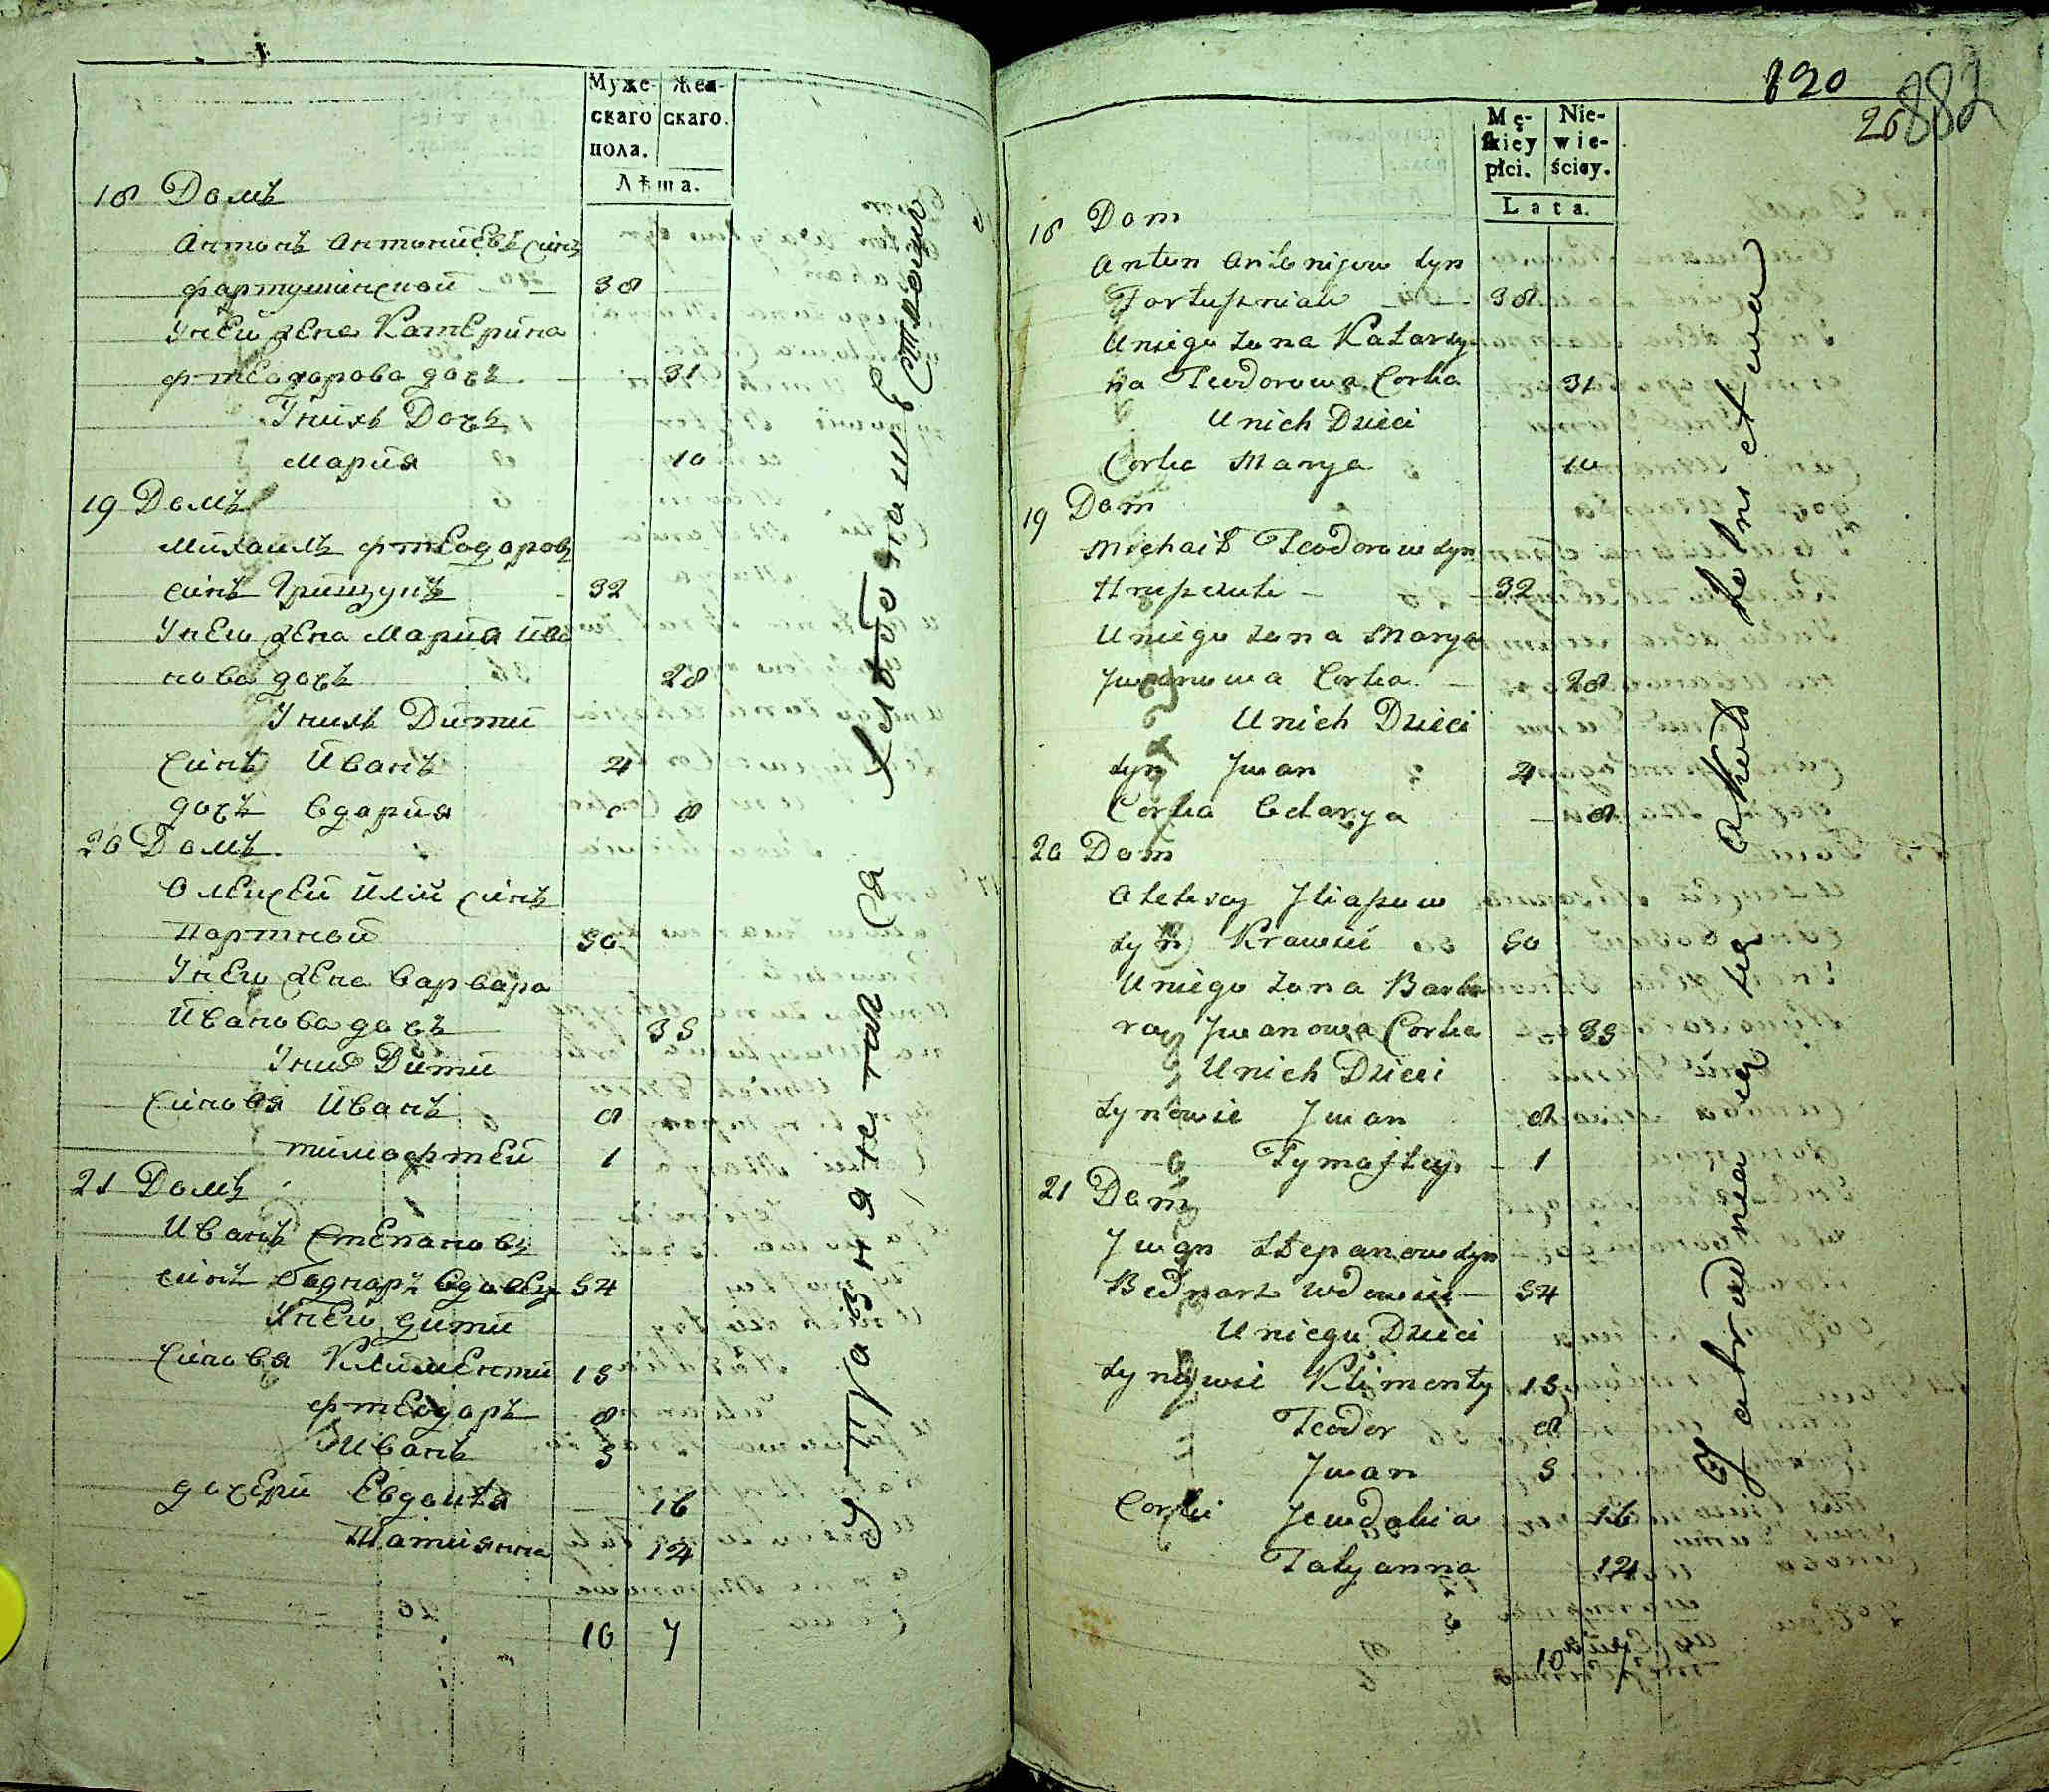 Муже-
скаго
пола.
Жен-
скаго.
Лѣта.
18 Домъ
Антонъ Антониевъ синъ
фартушинской 38
Уней жена Катерина
фтеодорова дочъ 31
Унихъ Дочъ
Мария 10
19 Домъ
Михаилъ фтеодоровъ
синъ Грищукъ 32
Унего жена Мария Ива
нова дочъ 28
Унихъ Дити
Синъ Иванъ 4
дочъ Вдария 8
20 Домъ
Олексей Илій синъ
Портной 50
Унего жена Варвара
Иванова дочъ 35
Унихъ Дити
Синовя Иванъ 8
тимофтей 1
21 Домъ
Иванъ Степановъ
синъ Боднаръ Вдовец 54
Унего дити
Синовя Климентий 15
фтеодоръ 8
Иванъ 5
дочери Евдокѣя 16
Татиянна 14
10 7
120
26
882
Mę-
skiey
płci.
Nie-
wie-
ściey.
Lata.
18 Dom
Anton Antonijow Syn
Fartuszniak 38
Uniego Zona Katarzy
na Teodorowa Corka 31
Unich Dzieci
Corka Marya 10
19 Dom
Michaił Teodorow Syn
Hryszczuk 32
Uniego Zona Marya
Jwanowa Corka 28
Unich Dzieci
Syn Jwan 4
Corka Wdarya 8
20 Dom
Alexey Jliaszow
Syn Krawiec 50
Uniego Zona Barba
ra Jwanowa Corka 35
Unich Dzieci
Synowie Jwan 8
Tymoftey 1
21 Dom
Jwan Stepanow Syn
Bednarz Wdowiec 54
Uniego Dzieci
Synowie Klimenty 15
Teodor 8
Jwan 5
Corki Jewdokia 16
Tatyanna 14
10 7